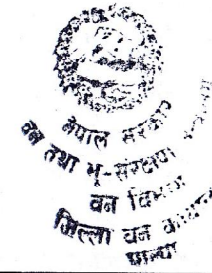 नेपाल सरकार
वन तथा भू-संरक्षण
वन विभाग
जिल्ला वन
पाल्पा